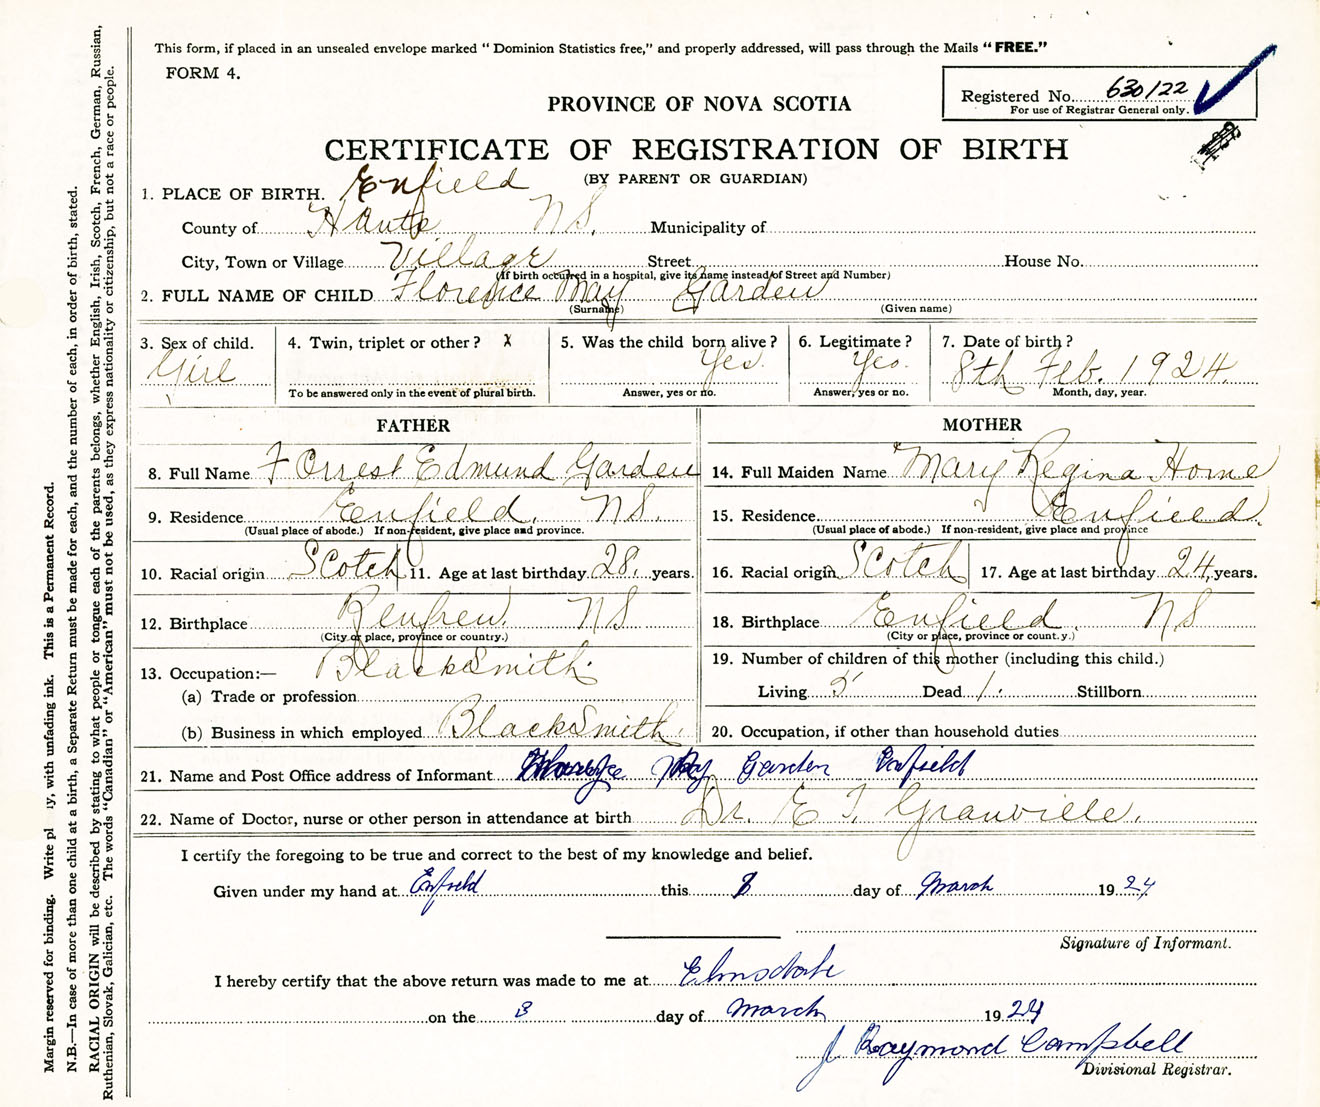 This form, if placed in an unsealed envelope marked "Dominion Statistics free," and properly addressed, will pass through the Mails "FREE."
FORM 4.
Registered No. 630122
For use of Registrar General only.
PROVINCE OF NOVA SCOTIA
CERTIFICATE OF REGISTRATION OF BIRTH
(BY PARENT OR GUARDIAN)
1. PLACE OF BIRTH. Enfield
County of Hants NS. Municipality of
City, Town or Village Village Street House No.
(If birth occurred in a hospital, give its name instead of Street and Number)
2. FULL NAME OF CHILD Florence May Garden
(Surname) (Given name)
3. Sex of child. 4. Twin, triplet or other? x 5. Was the child born alive? 6. Legitimate? 7. Date of birth?
Girl Yes. Yes. 8th Feb. 1924.
To be answered only in the event of plural birth. Answer, yes or no. Answer, yes or no. Month, day, year.
FATHER MOTHER
8. Full Name Forrest Edmund Garden 14. Full Maiden Name Mary Regina Horne
9. Residence Enfield, NS. 15. Residence Enfield.
(Usual place of abode.) If non-resident, give place and province. (Usual place of abode.) If non-resident, give place and province
10. Racial origin Scotch 11. Age at last birthday 28. years. 16. Racial origin Scotch 17. Age at last birthday 24, years.
12. Birthplace Renfrew. NS 18. Birthplace Enfield. NS
(City or place, province or country.) (City or place, province or count.y.)
13. Occupation:— BlackSmith. 19. Number of children of this mother (including this child.)
(a) Trade or profession Living 5 Dead 1. Stillborn
(b) Business in which employed BlackSmith. 20. Occupation, if other than household duties
21. Name and Post Office address of Informant May Garden Enfield
22. Name of Doctor, nurse or other person in attendance at birth Dr. E T. Granville.
I certify the foregoing to be true and correct to the best of my knowledge and belief.
Given under my hand at Enfield this day of March 1924
Signature of Informant.
I hereby certify that the above return was made to me at Elmsdale
on the 3 day of March 1924
J Raymond Campbell
Divisional Registrar.
Margin reserved for binding. Write pl y, with unfading ink. This is a Permanent Record.
N.B.—In case of more than one child at a birth, a Separate Return must be made for each, and the number of each, in order of birth, stated.
RACIAL ORIGIN will be described by stating to what people or tongue each of the parents belongs, whether English, Irish, Scotch, French, German, Russian,
Ruthenian, Slovak, Galician, etc. The words "Canadian" or "American" must not be used, as they express nationality or citizenship, but not a race or people.